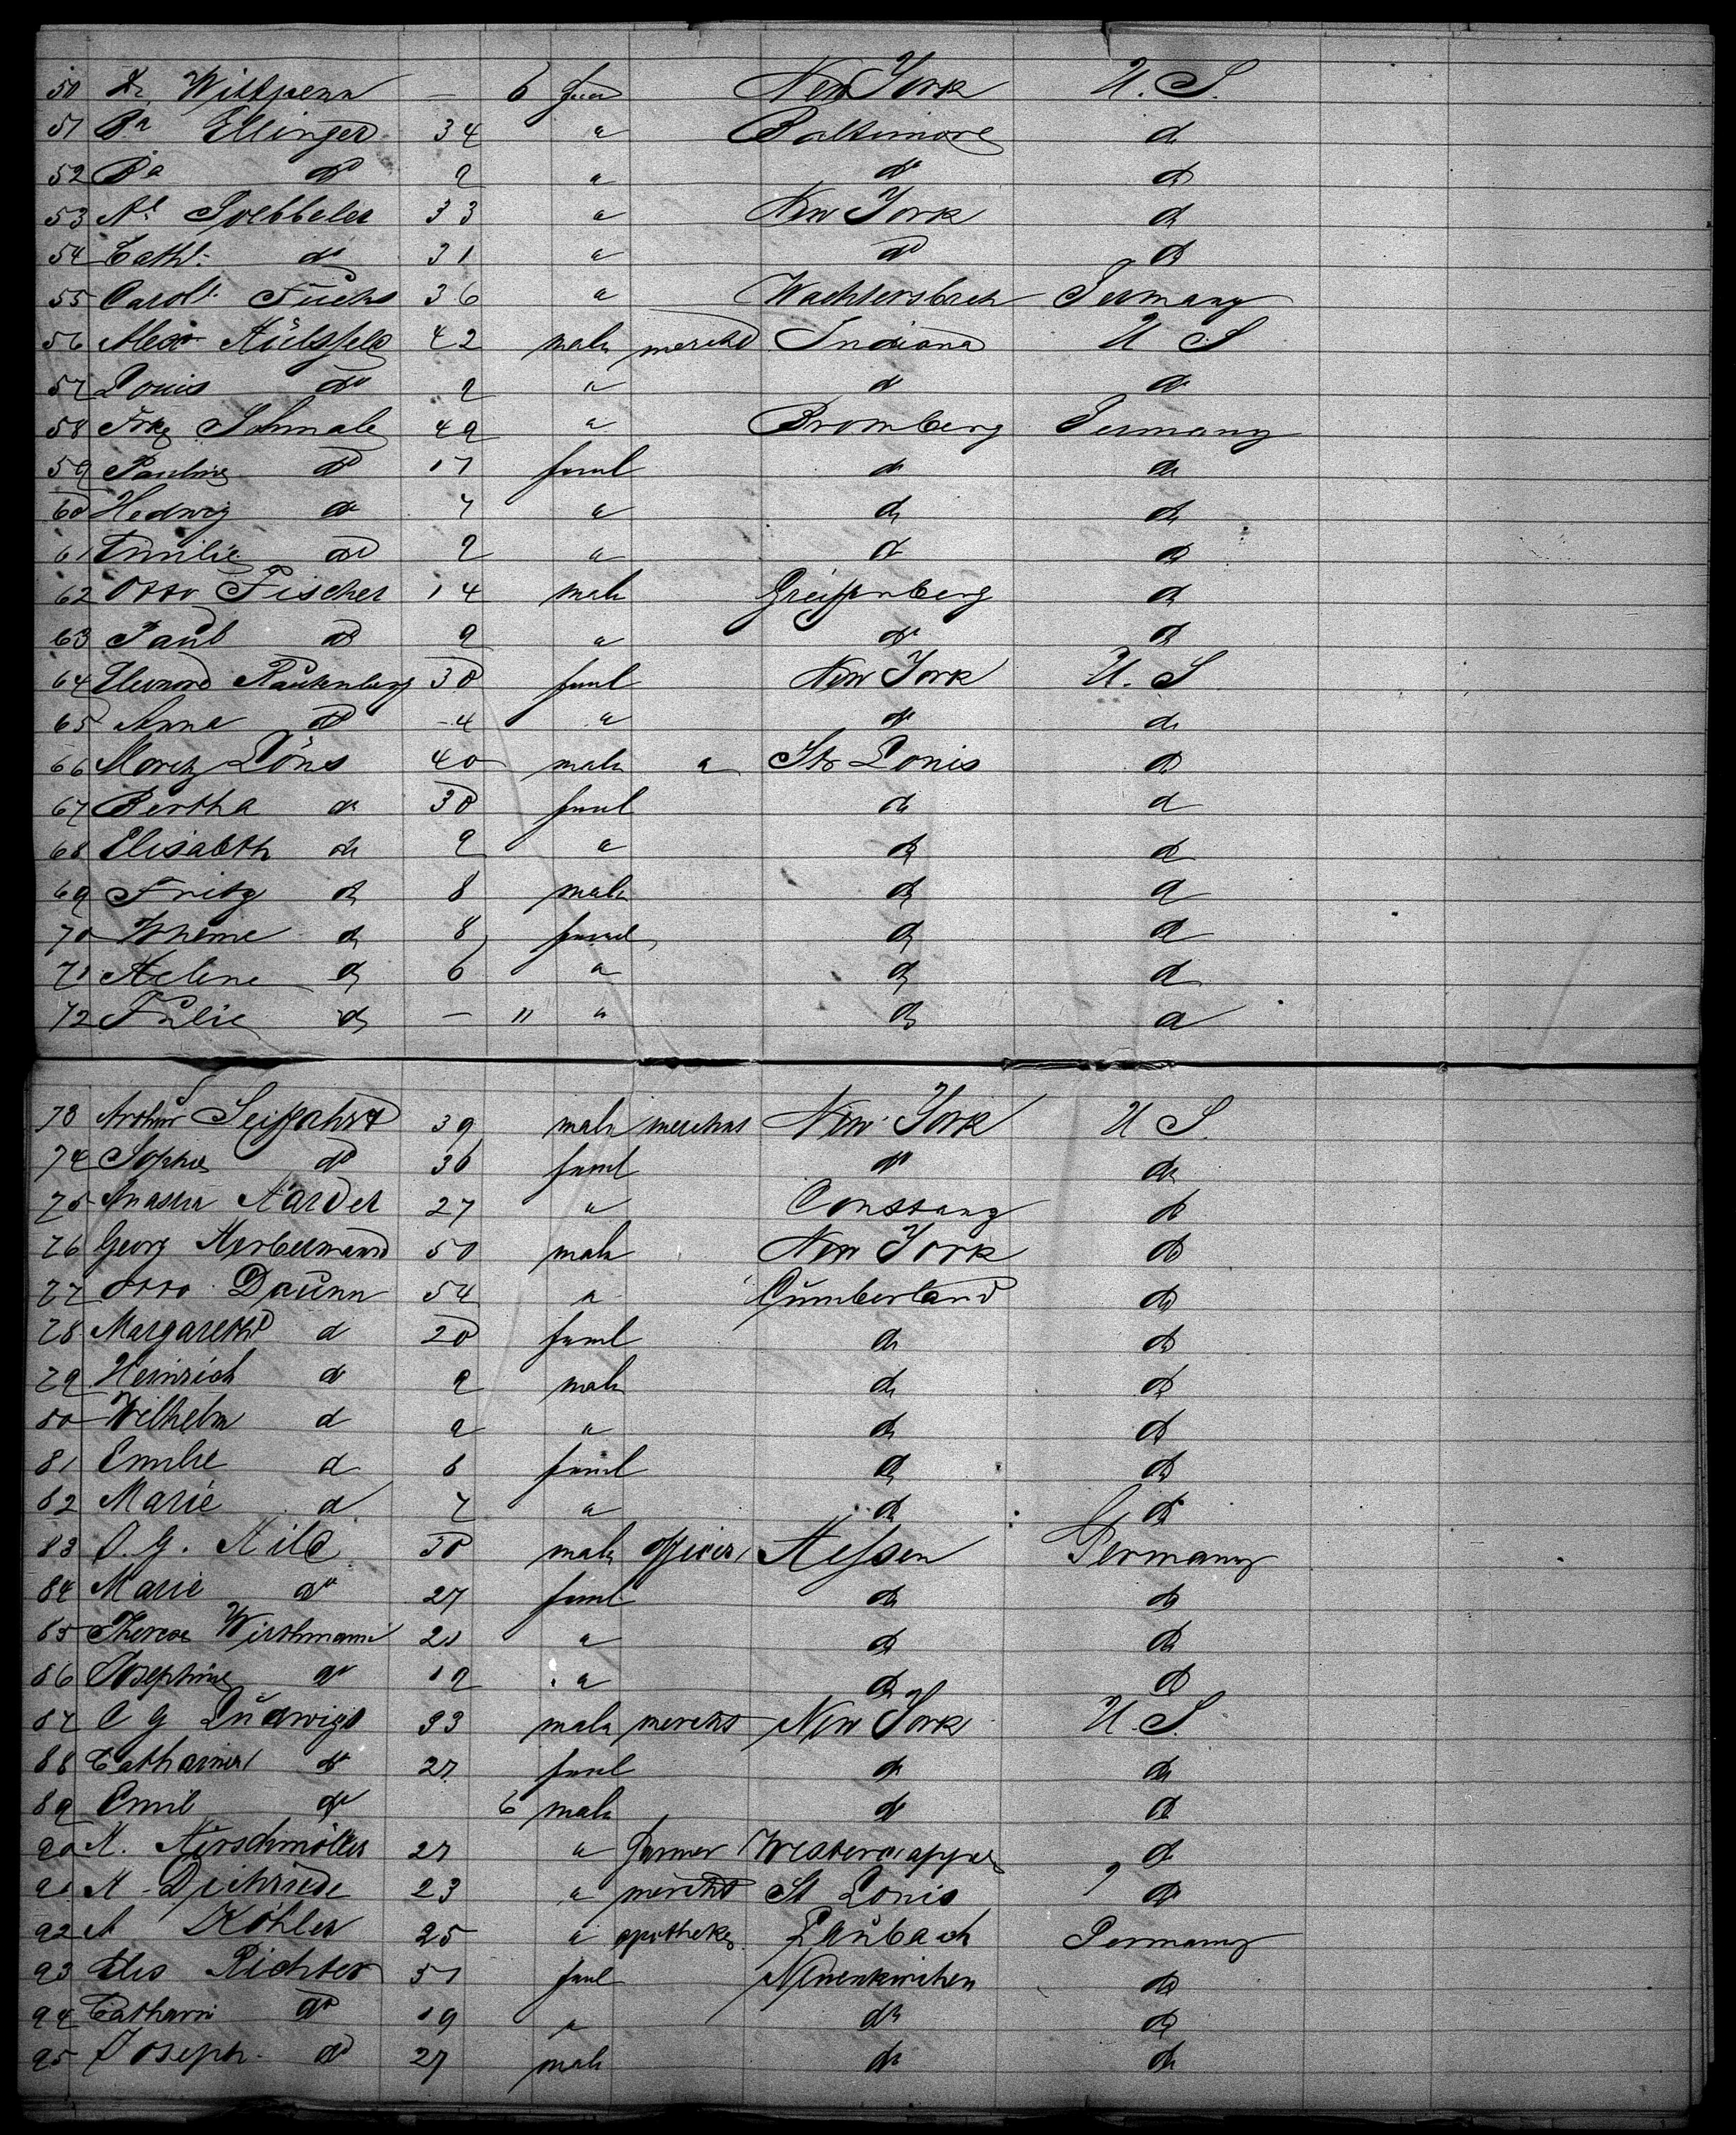 50 Wittpenn — 6 fem New York U. S.
51 Ba Ellinger 34 " Baltimore do
52 Ba do 9 " do do
53 Poebbeler 33 " New York do
54 Cath. do 31 " do do
55 Carol. Fuchs 36 " Germany
56 Alex 42 male mercht Indiana U S
57 Louis do 9 " do do
58 49 " Bromberg Germany
59 Pauline do 17 feml do do
60 Hedwig do 7 " do do
61 Emilie do 9 " do do
62 Otto Fischer 14 male Greiffenberg do
63 Paul do 9 " do do
64 30 feml New York U. S
65 Anna do 4 " do do
66 Moritz Löns 40 male " St Louis do
67 Bertha do 30 feml do do
68 Elisabeth do 9 " do do
69 Fritz do 8 male do do
70 do 8 femel do do
71 Helene do 6 " do do
72 Julie do — 11 " do do
73 Arthur Seiffahrt 39 male merchant New York U S.
74 Sophie do 36 feml do do
75 Harder 27 " Constanz do
76 Georg Herbermann 50 male New York do
77 Otto Daünn 54 " Cumberland do
78 Margareth do 20 feml do do
79 Heinrich do 9 male do do
80 Wilhelm do 9 " do do
81 Emilie do 8 feml do do
82 Marie do 7 " do do
83 30 male officer Hessen Germany
84 Marie do 27 feml do do
85 Therese Wirthmann " do do
86 Josephine do 19 " do do
87 C G Ludwigs 33 male mercht New York U. S.
88 Catharine do 27 feml do do
89 Emil do 6 male do do
90 H. Hirschmöller 27 " farmer do
91 23 " mercht St Louis do
92 A Köhler 25 " apotheker Laubach Germany
93 Els Richter 51 feml Neuenkirchen do
94 Catharin do 19 " do do
95 Joseph do 27 male do do